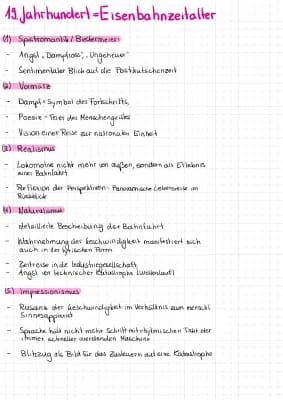 19. Jahrhundert = Eisenbahnzeitalter
(1) Spätromantik / Biedermeier
- Angst „Dampfross", „Ungeheuer"
- Sentimentaler Blick auf die Postkutschenzeit
(2) Vormärz
- Dampf = Symbol des Fortschritts,
- Poesie - Feier des Menschengeistes
- Vision einer Reise zur nationalen Einheit
(3) Realismus
- Lokomotive nicht mehr von außen, sondern als Erlebnis
einer Bahnfahrt
- Reflexion der Perspektiven - Panoramische Lebensreise im
Rückblick
(4) Naturalismus
- detaillierte Beschreibung der Bahnfahrt
- Wahrnehmung der Geschwindigkeit manifestiert sich
auch in der lyrischen Form
- Zeitreise in die Industriegesellschaft
- Angst vor technischer Katastrophe
(5) Impressionismus
- Rasanz der Geschwindigkeit im Verhältnis zum menschl.
Sinnesapparat
- Sprache hält nicht mehr Schritt mit rhytmischen Takt der
immer schneller werdenden Maschine
- Blitzzug als Bild für das Zusteuern auf eine Katastrophe